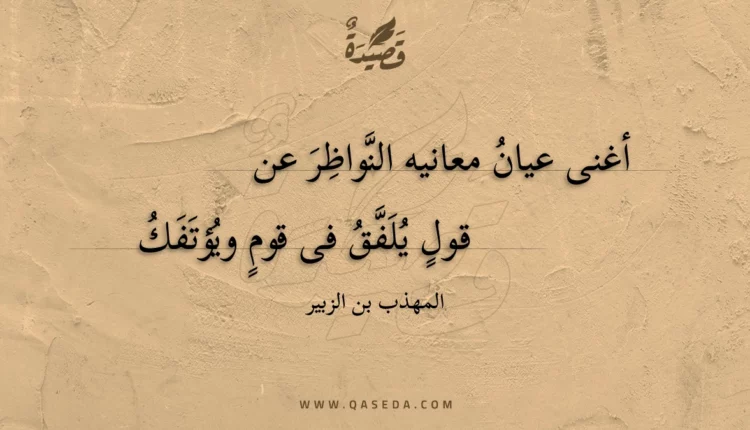 قَصِيْدَةٌ
أغنى عيانُ معانيه النَّواظِرَ عن
قولٍ يُلَفَّقُ فى قومٍ ويُؤتَفَكُ
المهذب بن الزبير
WWW.QASEDA.COM